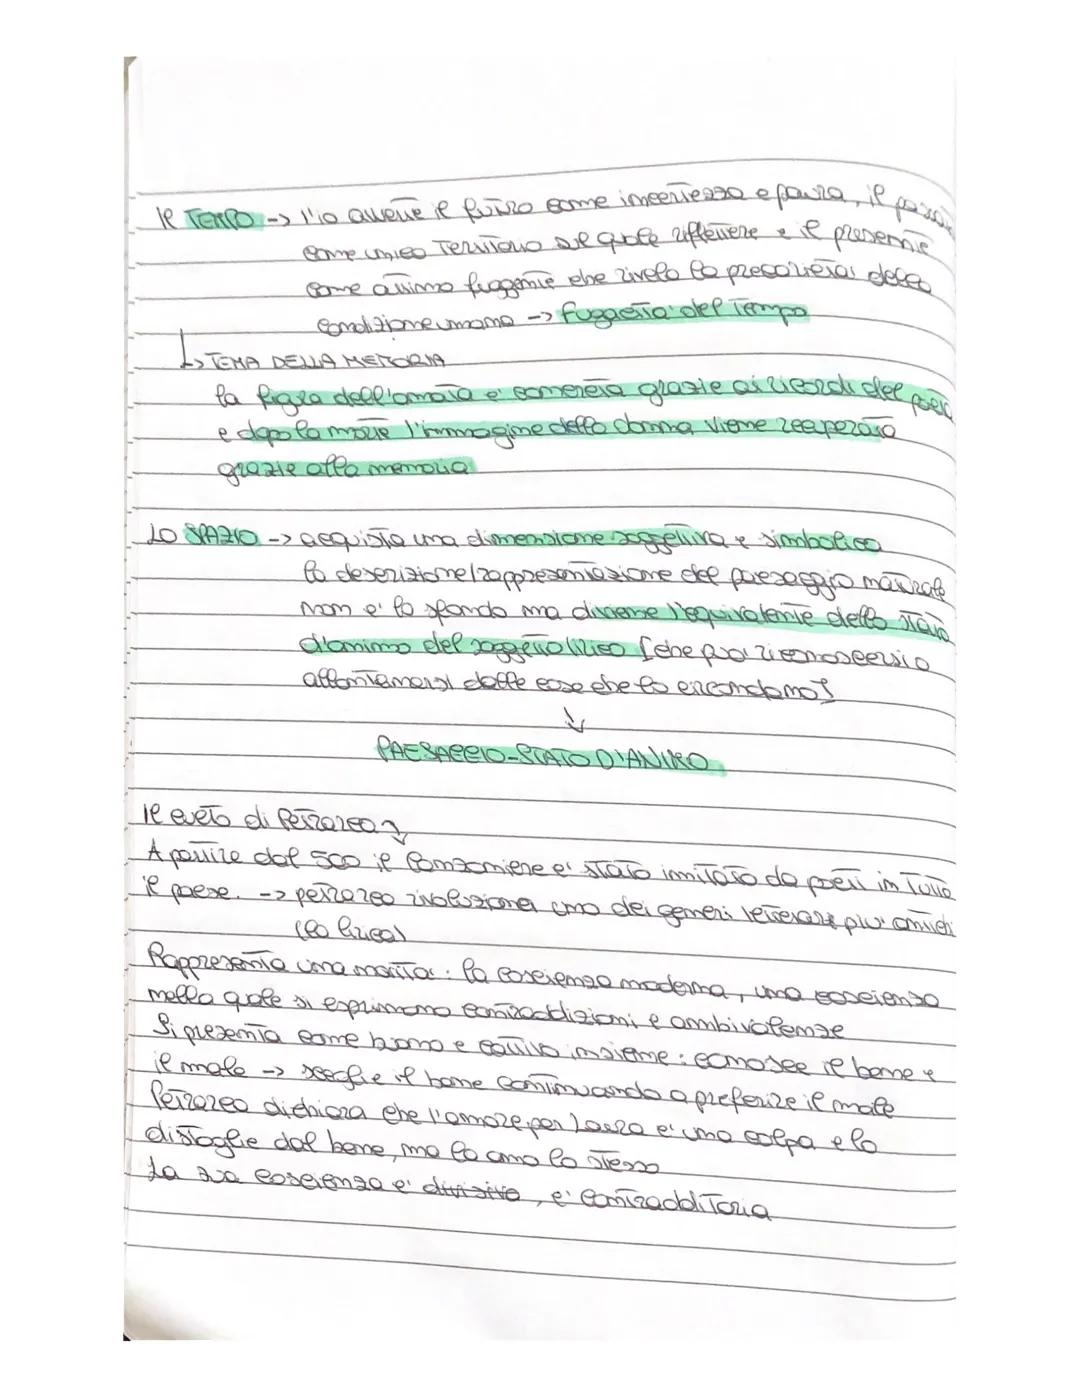 Il TEMPO -> l'io avverte il futuro come incertezza e paura, il passato
come unico territorio sul quale riflettere e il presente
come attimo fuggente che rivela la precarietà della
condizione umana -> fuggevolezza del tempo
↳ TEMA DELLA MEMORIA
la figura dell'amata e' concreta grazie ai ricordi del poeta
e dopo la morte l'immagine della donna viene recuperata
grazie alla memoria
LO SPAZIO -> acquista una dimensione soggettiva e simbolica
la descrizione/rappresentazione del paesaggio naturale
non e' lo sfondo ma diviene l'equivalente dello stato
d'animo del soggetto lirico [che puo' riconoscersi o
allontanarsi dalle cose che lo circondano]
↓
PAESAGGIO-STATO D'ANIMO
Il culto di Petrarca ↓
A partire dal 500 il Canzoniere e' stato imitato da poeti in tutto
il paese. -> petrarca rivoluziona uno dei generi letterari piu' antichi
(la lirica)
Rappresenta una novita': la coscienza moderna, una coscienza
nella quale si esprimono contraddizioni e ambivalenze
Si presenta come buono e cattivo insieme: conosce il bene e
il male -> sceglie il bene continuando a preferire il male
Petrarca dichiara che l'amore per Laura e' una colpa e lo
distoglie dal bene, ma la ama lo stesso
La sua coscienza e' , e' contradditoria